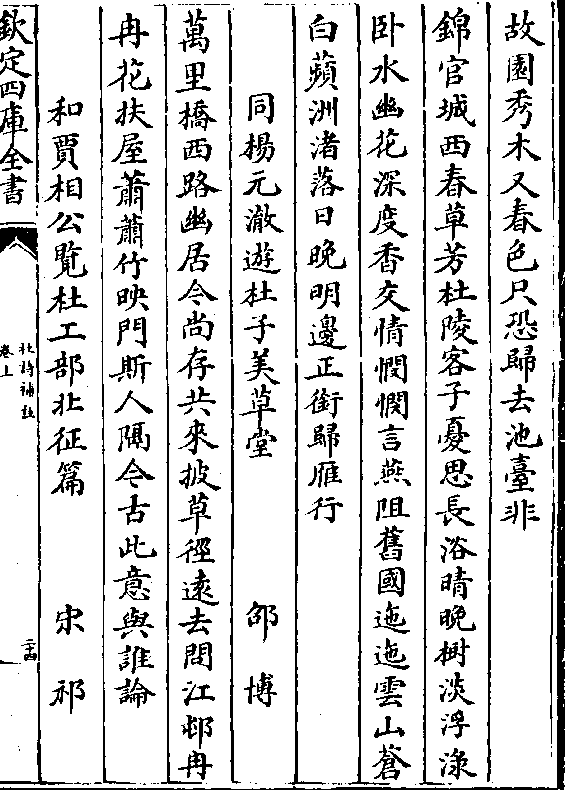 故園秀木又春色只恐歸去池臺非
錦官城西春草芳杜陵客子憂思長浴晴晩樹淡浮渌
卧水幽花深度香交情憫憫言燕阻舊國迤迤雲山蒼
白蘋洲渚落日晚明邊正銜歸雁行
同楊元澈遊杜子美草堂 邵博
萬里橋西路幽居今尚存共來披草徑逺去問江邨冉
冉花扶屋蕭蕭竹映門斯人隔今古此意與誰論
和賈相公覧杜工部北征篇 宋祁
欽定四庫全書
杜詩補註
卷上
二十四